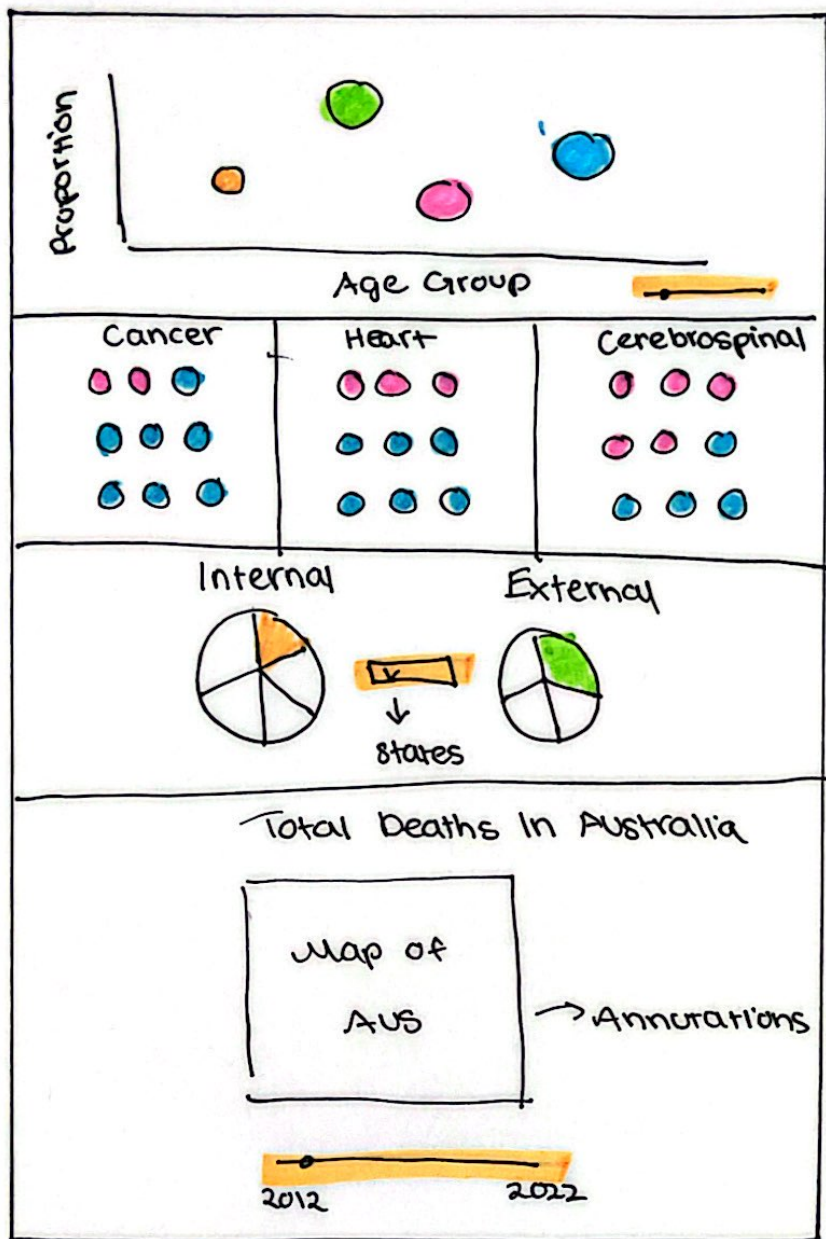 Proportion
Age Group
Cancer
Heart
Cerebrospinal
Internal
External
States
Total Deaths In Australia
Map of
AUS
Annotations
2012
2022